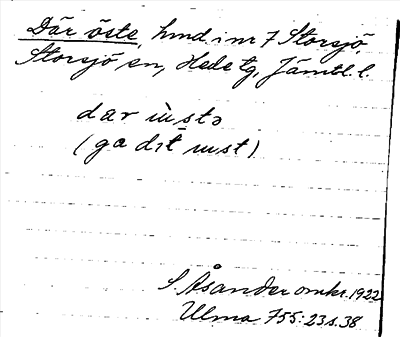 Där öste, hmd. i nr 7 Storsjö,
Storsjö sn, Hede tg, Jämtl. l.
dar ùstə
(ga dɩt ust)
S. Åsander omkr. 1922
Ulma 755:23 s. 38